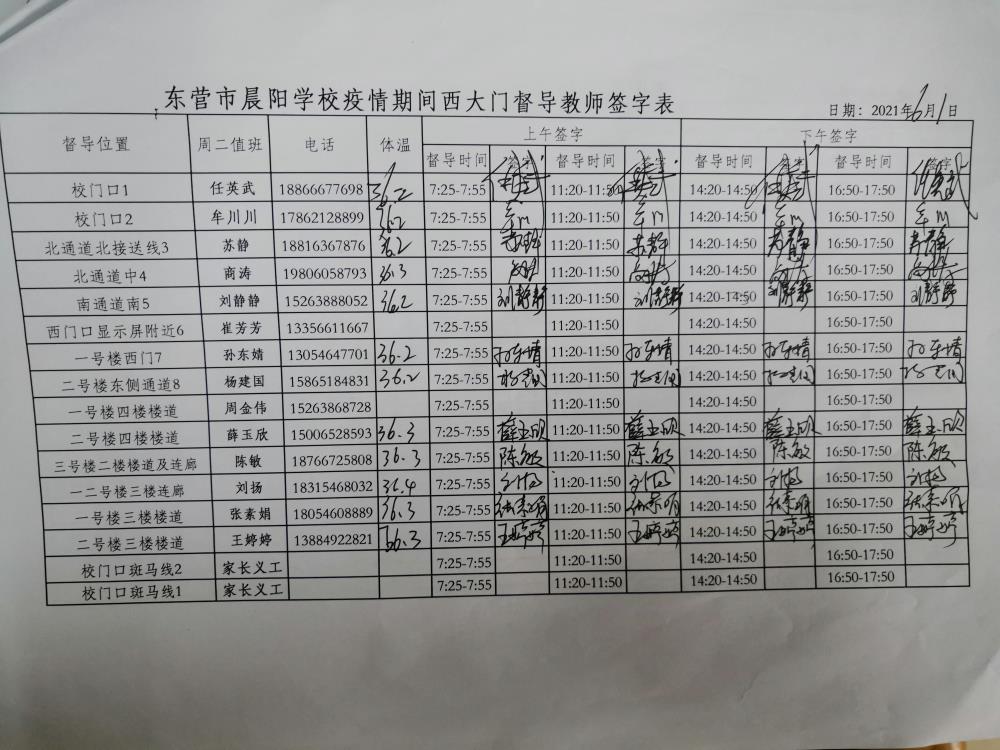 东营市晨阳学校疫情期间西大门督导教师签字表
日期：2021年6月1日
督导位置 周二值班 电话 体温 上午签字 下午签字
督导时间 签字 督导时间 签字 督导时间 签字 督导时间 签字
校门口1 任英武 18866677698 36.2 7:25-7:55 11:20-11:50 14:20-14:50 16:50-17:50
校门口2 牟川川 17862128899 36.2 7:25-7:55 11:20-11:50 14:20-14:50 16:50-17:50
北通道北接送线3 苏静 18816367876 36.2 7:25-7:55 苏静 11:20-11:50 苏静 14:20-14:50 苏静 16:50-17:50 苏静
北通道中4 商涛 19806058793 36.3 7:25-7:55 11:20-11:50 14:20-14:50 16:50-17:50
南通道南5 刘静静 15263888052 36.2 7:25-7:55 刘静静 11:20-11:50 刘静静 14:20-14:50 刘静静 16:50-17:50 刘静静
西门口显示屏附近6 崔芳芳 13356611667 7:25-7:55 11:20-11:50 14:20-14:50 16:50-17:50
一号楼西门7 孙东婧 13054647701 36.2 7:25-7:55 孙东婧 11:20-11:50 孙东婧 14:20-14:50 孙东婧 16:50-17:50 孙东婧
二号楼东侧通道8 杨建国 15865184831 36.2 7:25-7:55 杨建国 11:20-11:50 杨建国 14:20-14:50 杨建国 16:50-17:50 杨建国
一号楼四楼楼道 周金伟 15263868728 7:25-7:55 11:20-11:50 14:20-14:50 16:50-17:50
二号楼四楼楼道 薛玉欣 15006528593 36.3 7:25-7:55 薛玉欣 11:20-11:50 薛玉欣 14:20-14:50 薛玉欣 16:50-17:50 薛玉欣
三号楼二楼楼道及连廊 陈敏 18766725808 36.3 7:25-7:55 陈敏 11:20-11:50 陈敏 14:20-14:50 陈敏 16:50-17:50 陈敏
一二号楼三楼连廊 刘扬 18315468032 36.4 7:25-7:55 刘扬 11:20-11:50 刘扬 14:20-14:50 刘扬 16:50-17:50 刘扬
一号楼三楼楼道 张素娟 18054608889 36.3 7:25-7:55 张素娟 11:20-11:50 张素娟 14:20-14:50 张素娟 16:50-17:50 张素娟
二号楼三楼楼道 王婷婷 13884922821 36.3 7:25-7:55 王婷婷 11:20-11:50 王婷婷 14:20-14:50 王婷婷 16:50-17:50 王婷婷
校门口斑马线2 家长义工 7:25-7:55 11:20-11:50 14:20-14:50 16:50-17:50
校门口斑马线1 家长义工 7:25-7:55 11:20-11:50 14:20-14:50 16:50-17:50